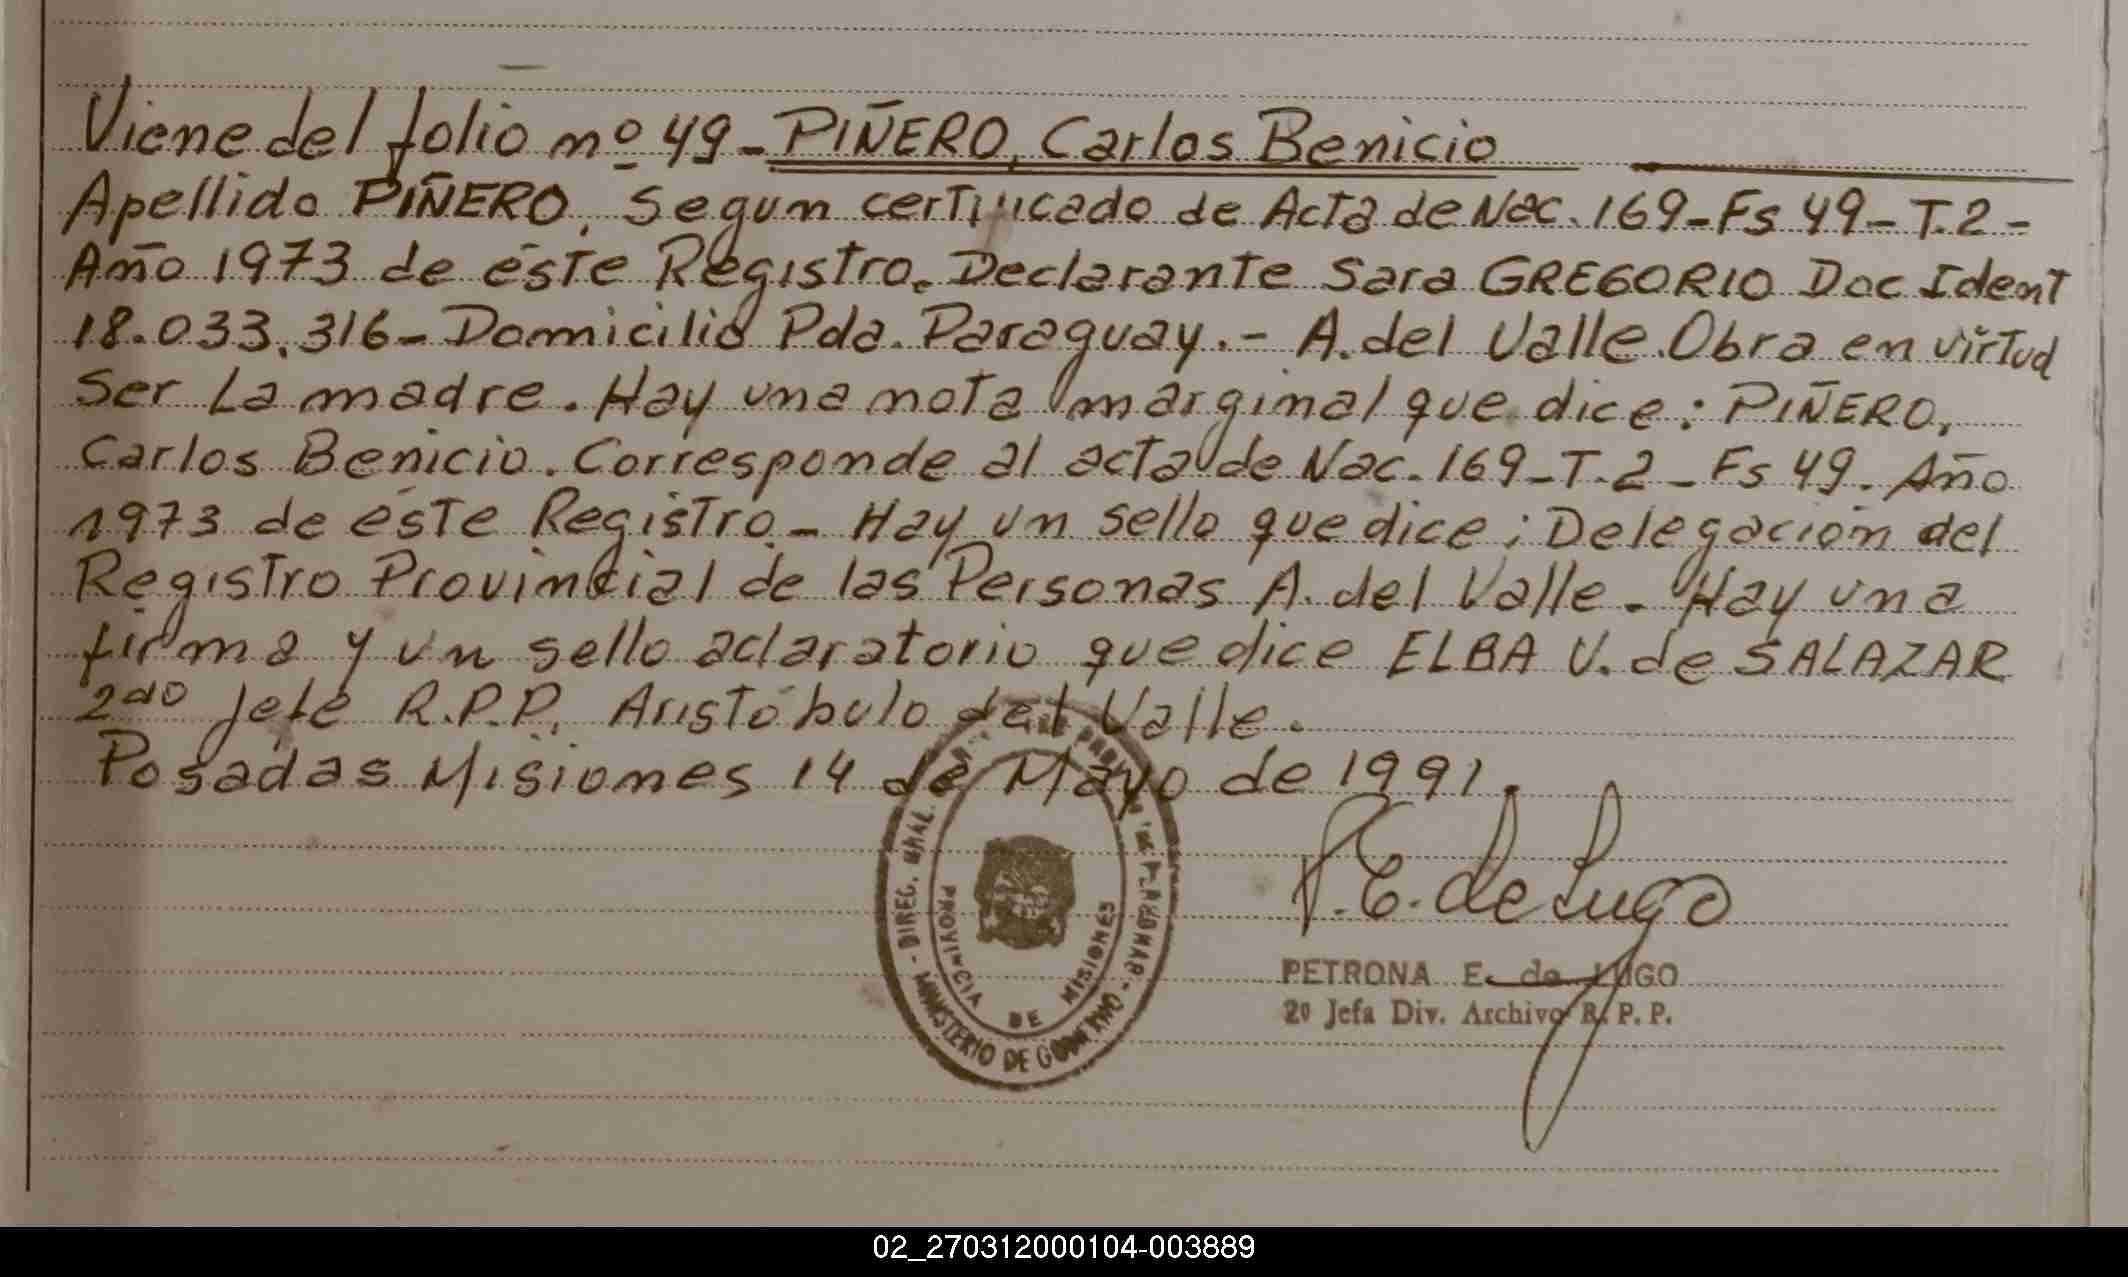 Viene del folio nº 49 - PIÑERO, Carlos Benicio
Apellido PIÑERO, Segun certificado de Acta de Nac. 169 - Fs 49 - T. 2 -
Año 1973 de éste Registro. Declarante Sara GREGORIO Doc Ident
18.033.316 - Domicilio Pda. Paraguay. - A. del Valle. Obra en virtud
Ser La madre. Hay una nota marginal que dice: PIÑERO,
Carlos Benicio. Corresponde al acta de Nac. 169 - T. 2 - Fs 49. Año
1973 de éste Registro. - Hay un sello que dice; Delegación del
Registro Provincial de las Personas A. del Valle. Hay una
firma y un sello aclaratorio que dice ELBA V. de SALAZAR
2do Jefe R.P.P. Aristóbulo del Valle.
Posadas Misiones 14 de Mayo de 1991.
P. E. de Lugo
PETRONA E. de LUGO
2º Jefa Div. Archivo R. P. P.
- DIREC. GRAL.
PROVINCIA DE MISIONES
MINISTERIO DE GOBIERNO -
02_270312000104-003889